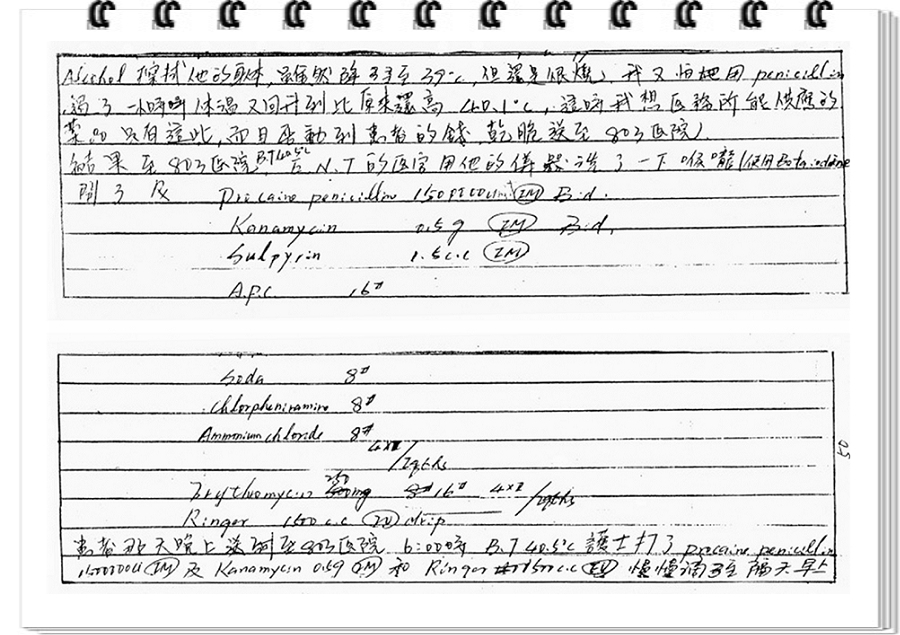 Alcohol 擦拭他的身体,虽然降至39°c,但還是很燒,我又怕他用 penicillin
過了一小時時体温又回升到比原來還高 40.1°c,這時我想医務所能供應的
藥品只有這些,而且啓動到患者的錢,乾脆送至803医院)
結果至803医院 B.T 40.5°c 後 N.T 的医官用他的儀器洗了一下喉嚨(使用Beta-iodine
開了 Rx Procaine penicillin 150萬 unit (IM) B.d.
Kanamycin 0.5g (IM) B.d.
Sulpyrin 1.5c.c (IM)
A.P.C. 16#
Soda 8#
chlorpheniramine 8#
Ammonium chloride 8#
4xI/2qths
Erythromycin 250mg 16# 4xI/2qths
Ringer 1500c.c (IV) drip
0.5
患者那天晚上送到至803医院 6:00時 B.T 40.5°c 護士打了 procaine penicillin
1500000u (IM) 及 Kanamycin 0.5g (IM) 和 Ringer 1500c.c (IV) 慢慢滴至隔天早上